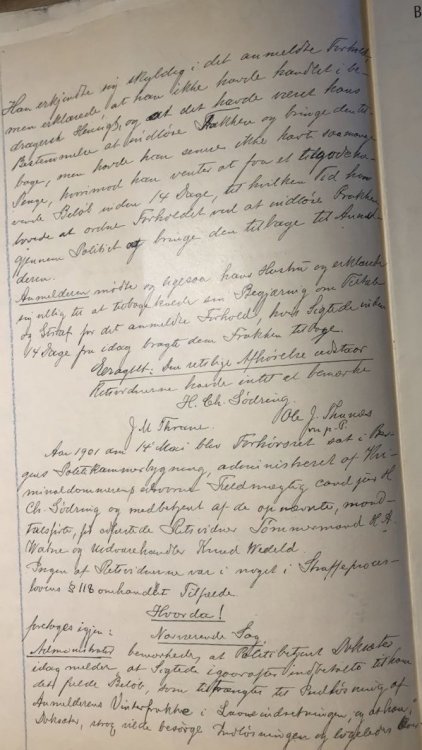 B
Han erkjendte sig skyldig i det anmeldte Forhold,
men erklærede at han ikke havde handlet i be-
dragersk Hensigt, og at det havde været hans
Bestemmelse at indløse Frakken og bringe den til-
bage, men havde han senere ikke havt saa mange
Penge, hvorimod han venter at faa et tilgodeha-
vende Beløb inden 14 Dage, til hvilken Tid han
lovede at ordne Forholdet ved at indløse Frakken
gjennem Politiet og bringe den tilbage til Anmel-
deren.
Anmelderen mødte og ligesaa hans Hustru og erklærede
sig villig til at tilbagekalde sin Begjæring om Tiltale
og Straf for det anmeldte Forhold, hvis Sigtede inden
14 Dage fra idag bragte dem Frakken tilbage.
Eragtet: Den retslige Afhørelse udstaar
Retsvidnerne havde intet at bemærke
H. Ch. Södring.
J. M. Thrane. Ole J.
Aar 1901 am 14 Mai blev Forhørsret sat i Ber-
gens Politikammerbygning, administreret af Kri-
minaldommerens edsvorne Fuldmægtig cand. jur. H.
Ch. Södring og medbetjent af de opnævnte, mand-
talsførte, før edfæstede Retsvidner Tømmermand H. A.
og Udvarehandler Knud
Ingen af Retsvidnerne var i noget i Straffeproces-
lovens § 118 omhandlet Tilfælde.
Hvorda!
foretoges igjen:
Nærværende Sag.
Administrator bemærkede, at Politibetjent Doksæter
idag melder, at Sigtede igaaraftes indbetalte til ham
det fulde Beløb, som tiltrængtes til Indløsning af
Anmelderens Vinterfrakke i Laaneindretningen, og at han,
Doksæter, strax vilde besørge Indløsningen og ligeledes